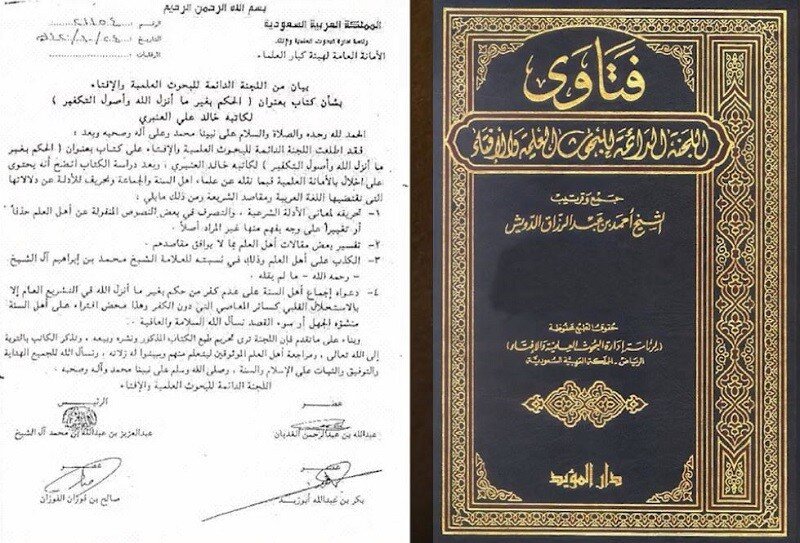 بسم الله الرحمن الرحيم
المملكة العربية السعودية
رئاسة إدارة البحوث العلمية والإفتاء
الأمانة العامة لهيئة كبار العلماء
الرقم
التاريخ
المرفقات
بيان من اللجنة الدائمة للبحوث العلمية والإفتاء
بشأن كتاب بعنوان ( الحكم بغير ما أنزل الله وأصول التكفير )
لكاتبه خالد علي العنبري
الحمد لله وحده والصلاة والسلام على نبينا محمد وعلى آله وصحبه وبعد :
فقد اطلعت اللجنة الدائمة للبحوث العلمية والإفتاء على كتاب بعنوان ( الحكم بغير
ما أنزل الله وأصول التكفير ) لكاتبه خالد العنبري ، وبعد دراسة الكتاب اتضح أنه يحتوي
على إخلال بالأمانة العلمية فيما نقله عن علماء أهل السنة والجماعة وتحريف للأدلة عن دلالاتها
التي تقتضيها اللغة العربية ومقاصد الشريعة ومن ذلك مايلي :
١- تحريفه لمعاني الأدلة الشرعية ، والتصرف في بعض النصوص المنقولة عن أهل العلم حذفاً
أو تغييراً على وجه يفهم منها غير المراد أصلاً .
٢- تفسير بعض مقالات أهل العلم بما لا يوافق مقاصدهم .
٣- الكذب على أهل العلم وذلك في نسبته للعلامة الشيخ محمد بن إبراهيم آل الشيخ
– رحمه الله – ما لم يقله .
٤- دعواه إجماع أهل السنة على عدم كفر من حكم بغير ما أنزل الله في التشريع العام إلا
بالاستحلال القلبي كسائر المعاصي التي دون الكفر وهذا محض افتراء على أهل السنة
منشؤه الجهل أو سوء القصد نسأل الله السلامة والعافية .
وبناء على ماتقدم فإن اللجنة ترى تحريم طبع الكتاب المذكور ونشره وبيعه ، وتذكر الكاتب بالتوبة
إلى الله تعالى ، ومراجعة أهل العلم الموثوقين ليتعلم منهم ويبينوا له زلاته ، ونسأل الله للجميع الهداية
والتوفيق والثبات على الإسلام والسنة ، وصلى الله وسلم على نبينا محمد وآله وصحبه .
اللجنة الدائمة للبحوث العلمية والإفتاء
عضو
الرئيس
عبدالله بن عبدالرحمن الغديان
عبدالعزيز بن عبدالله بن محمد آل الشيخ
عضو
عضو
بكر بن عبدالله أبوزيد
صالح بن فوزان الفوزان
فتاوى
اللجنة الدائمة للبحوث العلمية والإفتاء
جمع وترتيب
الشيخ أحمد بن عبد الرزاق الدويش
حقوق الطبع محفوظة
( لرئاسة إدارة البحوث العلمية والإفتاء )
الرياض - المملكة العربية السعودية
دار المؤيد